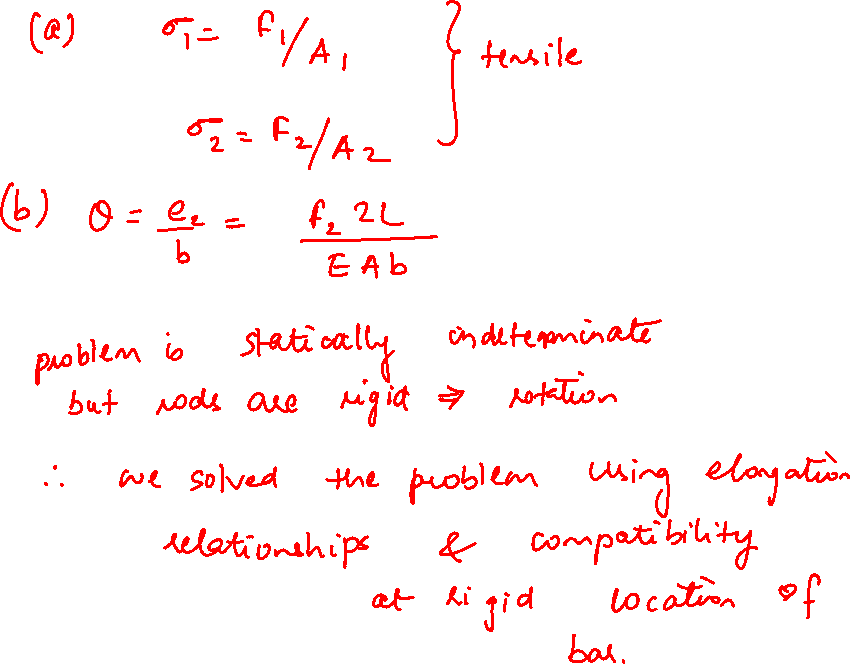 (a) σ₁ = F₁/A₁ } tensile
σ₂ = F₂/A₂
(b) θ = e₂/b = F₂ 2L / E A b
problem is statically indeterminate
but rods are rigid ⇒ rotation
∴ we solved the problem using elongation
relationships & compatibility
at rigid location of
bar.